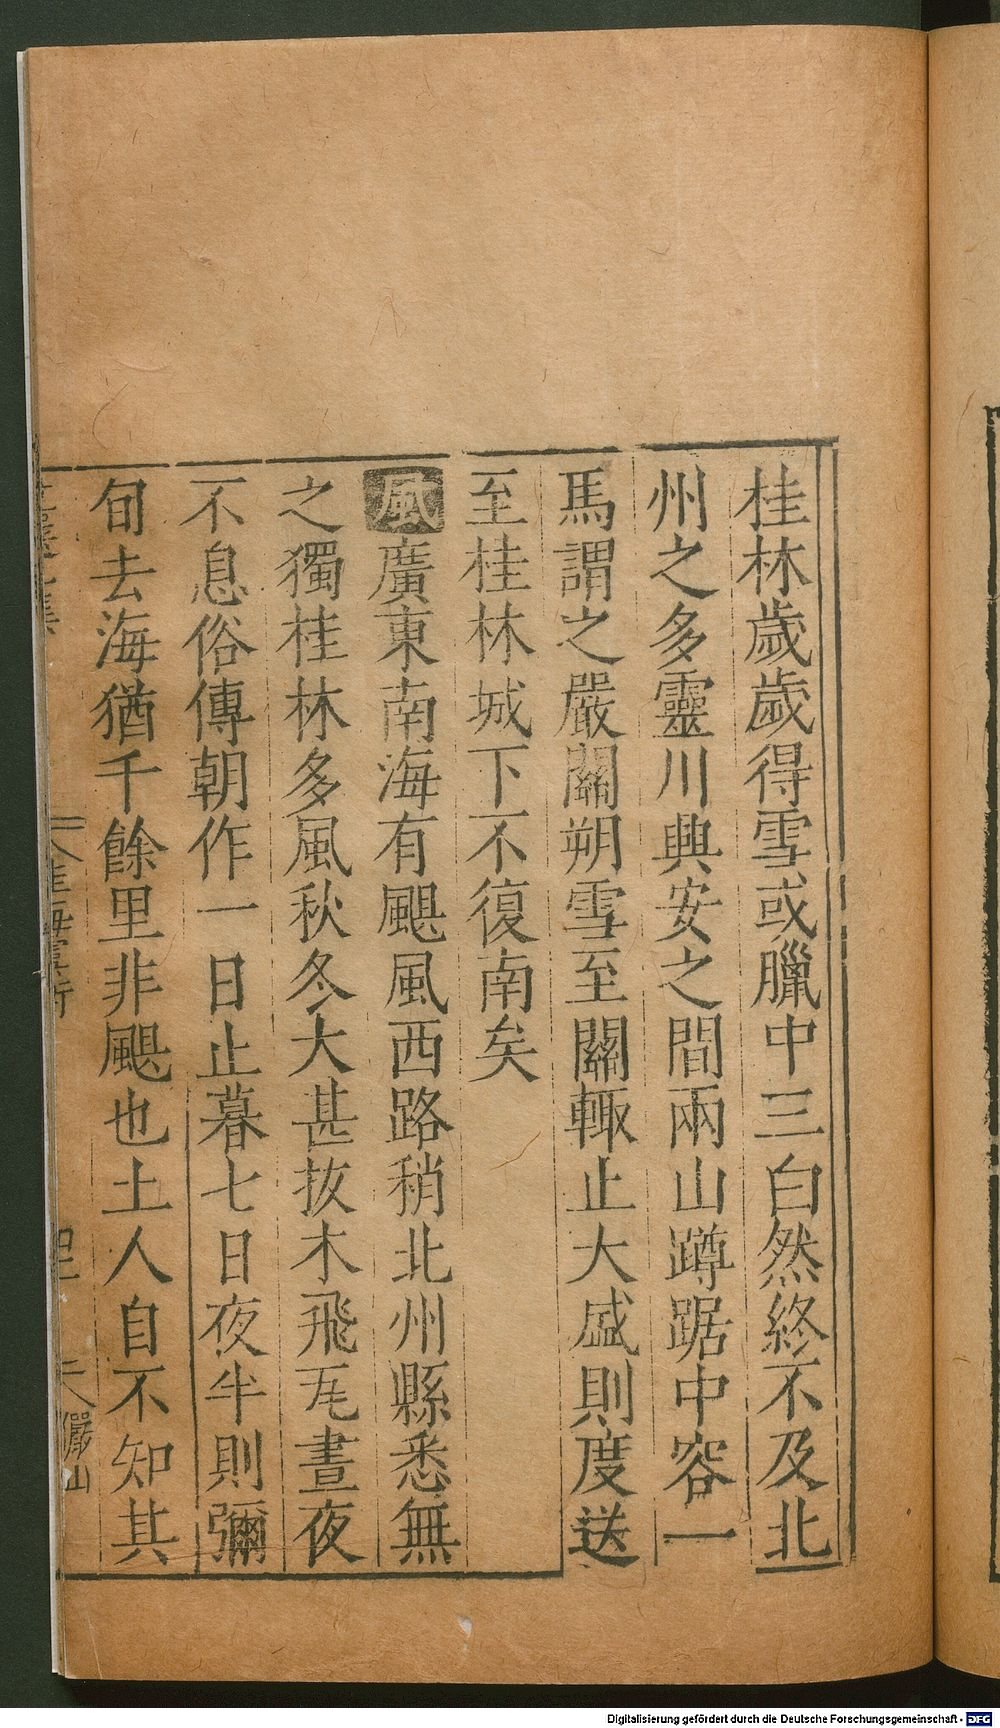 桂林歲歲得雪或臘中三白然終不及北
州之多靈川興安之間兩山蹲踞中容一
馬謂之嚴關朔雪至關輙止大盛則度送
至桂林城下不復南矣
風廣東南海有颶風西路稍北州縣悉無
之獨桂林多風秋冬大甚拔木飛瓦晝夜
不息俗傳朝作一日止暮七日夜半則彌
旬去海猶千餘里非颶也土人自不知其
Digitalisierung gefördert durch die Deutsche Forschungsgemeinschaft - DFG